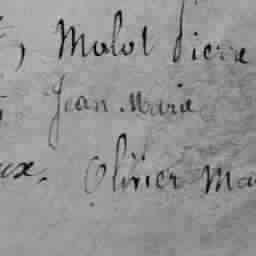 , Molot Pierre
Jean Marie
ux. Olivier Ma